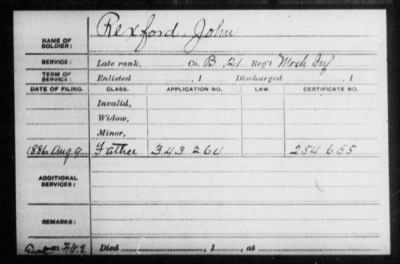 Rexford, John
NAME OF SOLDIER:
SERVICE: Late rank, Co. B, 21 Reg't Mich Inf
TERM OF SERVICE: Enlisted , 1 Discharged , 1
DATE OF FILING. CLASS. APPLICATION NO. LAW. CERTIFICATE NO.
Invalid,
Widow,
Minor,
1886 Aug 9 Father 343 264 254 655
ADDITIONAL SERVICES:
REMARKS:
Died , 1 , at